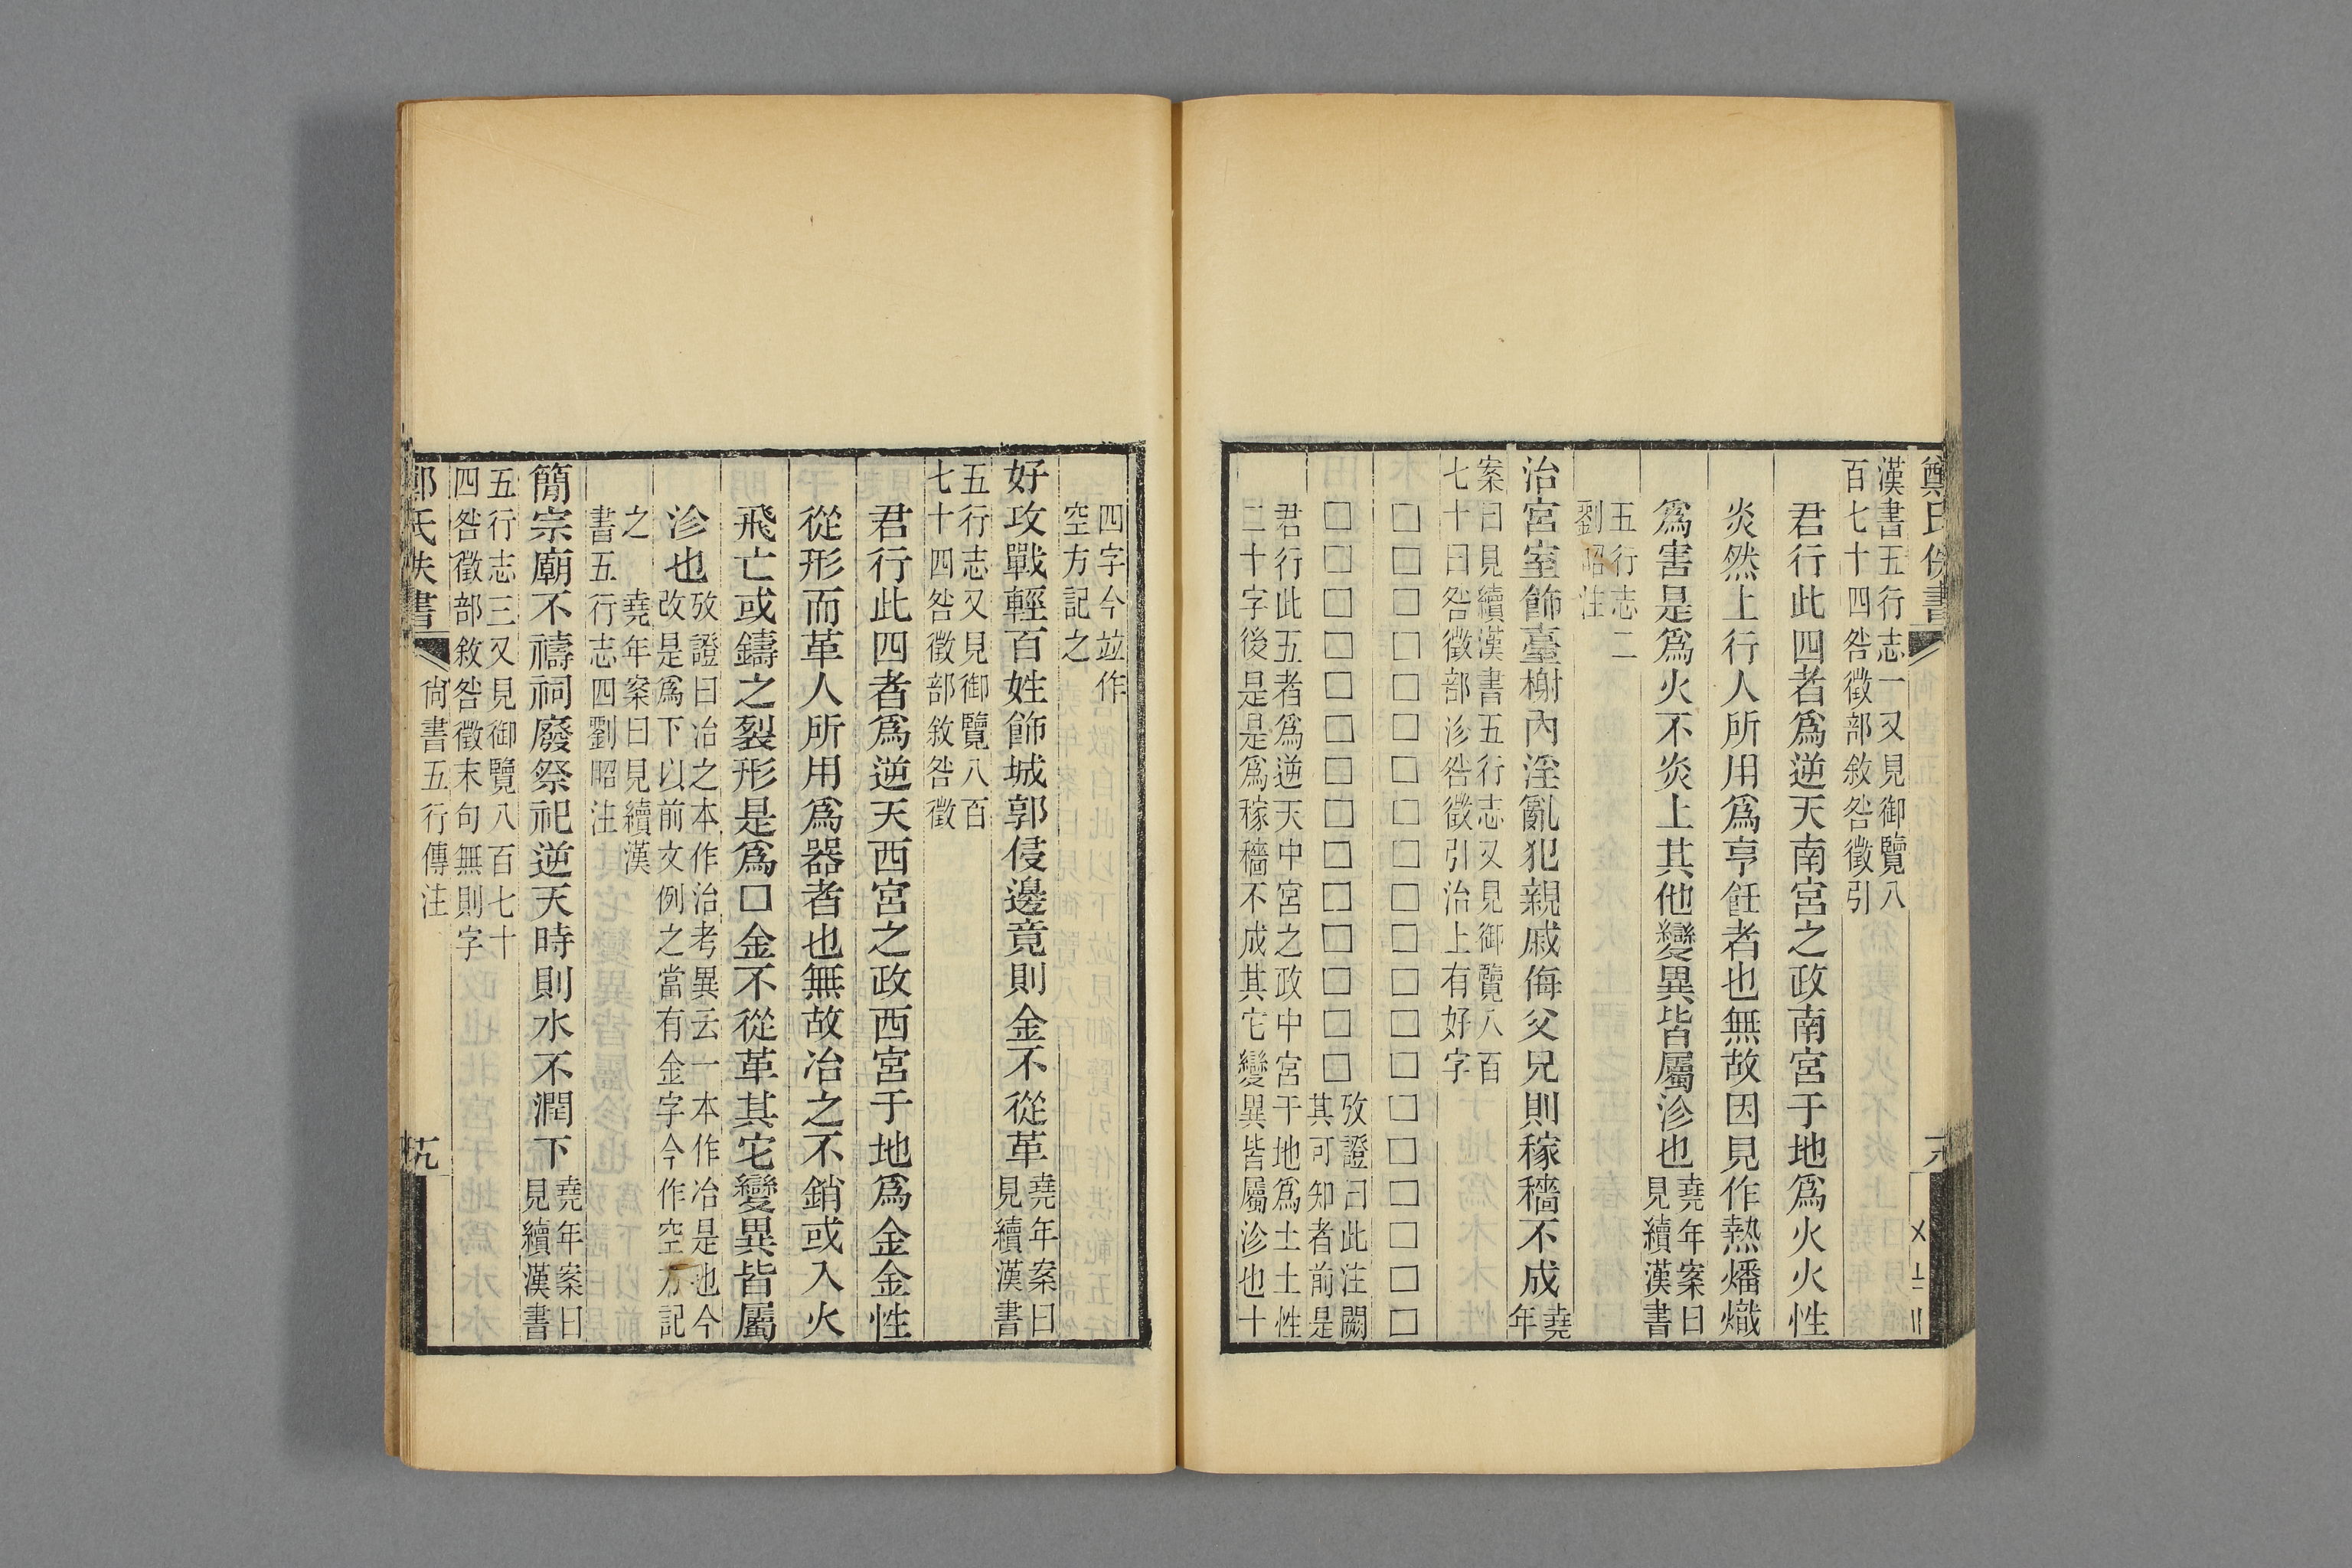 鄭氏佚書
漢書五行志一又見御覽八
百七十四咎徵部敘咎徵引
君行此四者爲逆天南宮之政南宮于地爲火火性
炎然上行人所用爲亨飪者也無故因見作熱燔熾
爲害是爲火不炎上其他變異皆屬沴也堯年案曰
見續漢書
五行志二
劉昭注
治宮室飾臺榭內淫亂犯親戚侮父兄則稼穡不成堯
年
案曰見續漢書五行志又見御覽八百
七十曰咎徵部沴咎徵引治上有好字
□□□□□□□□□□□□□□□□□□□□
□□□□□□□□□□□□□□攷證曰此注闕
其可知者前是
君行此五者爲逆天中宮之政中宮于地爲土土性
二十字後是是爲稼穡不成其它變異皆屬沴也十
四字今竝作
空方記之
好攻戰輕百姓飾城郭侵邊竟則金不從革堯年案曰
見續漢書
五行志又見御覽八百
七十四咎徵部敘咎徵
君行此四者爲逆天西宮之政西宮于地爲金金性
從形而革人所用爲器者也無故冶之不銷或入火
飛亡或鑄之裂形是爲□金不從革其它變異皆屬
沴也攷證曰冶之本作治考異云一本作冶是也今
改是爲下以前文例之當有金字今作空方記
之 堯年案曰見續漢
書五行志四劉昭注
簡宗廟不禱祠廢祭祀逆天時則水不潤下堯年案曰
見續漢書
五行志三又見御覽八百七十
四咎徵部敘咎徵末句無則字
鄭氏佚書 尚書五行傳注